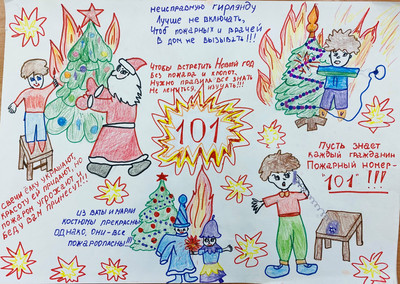 Неисправную гирлянду
Лучше не включать,
Чтоб пожарных и врачей
В дом не вызывать!!!
Чтобы встретить Новый год
Без пожара и хлопот,
Нужно правила все знать
Не лениться, изучать!!!
101
Свечи ёлку украшают,
Красоту ей придают, но
пожаром угрожают и
беду вам принесут!!!
Из ваты и марли
костюмы прекрасны,
Однако, они - все
пожароопасны!!!
Пусть знает
каждый гражданин
Пожарный номер-
"101" !!!